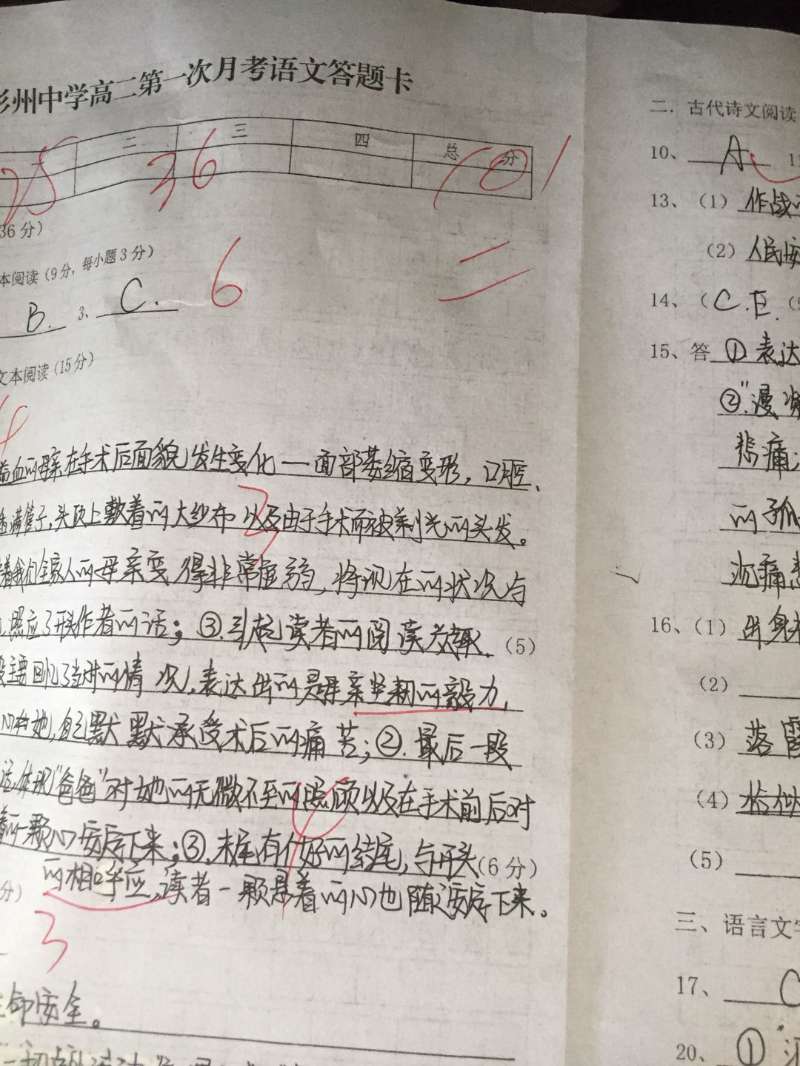 州中学高二第一次月考语文答题卡
二 三 四 总 分
25 36 101
36分)
本阅读(9分,每小题3分)
B. 3、 C. 6
文本阅读(15分)
4
母亲在手术后面貌发生变化一面部萎缩变形,口腔、
满管子,头顶上敷着的大纱布以及由于手术而被剃光的头发。
3
着我们全家人的母亲变得非常虚弱,将现在的状况与
照应了开头作者的话;③.引起读者的阅读兴趣.(5)
主要回忆了当时的情况,表达出的是母亲坚韧的毅力,
自己默默承受术后的痛苦;②.最后一段
体现"爸爸"对她的无微不至的照顾以及在手术前后对
一颗心安定下来;③.末尾有个好的结尾,与开头(6分)
的相呼应,读者一颗悬着的心也随之安定下来。
分)
3
命安全。
二.古代诗文阅读
10、 A
13、(1) 作战
(2) 人民安
14、( C.E.
15、答 ①.表达
②."漫
悲痛
的孤
沉痛悲
16、(1) 出身
(2)
(3) 落霞
(4)
(5)
三、语言文字
17、 C
20、 ①